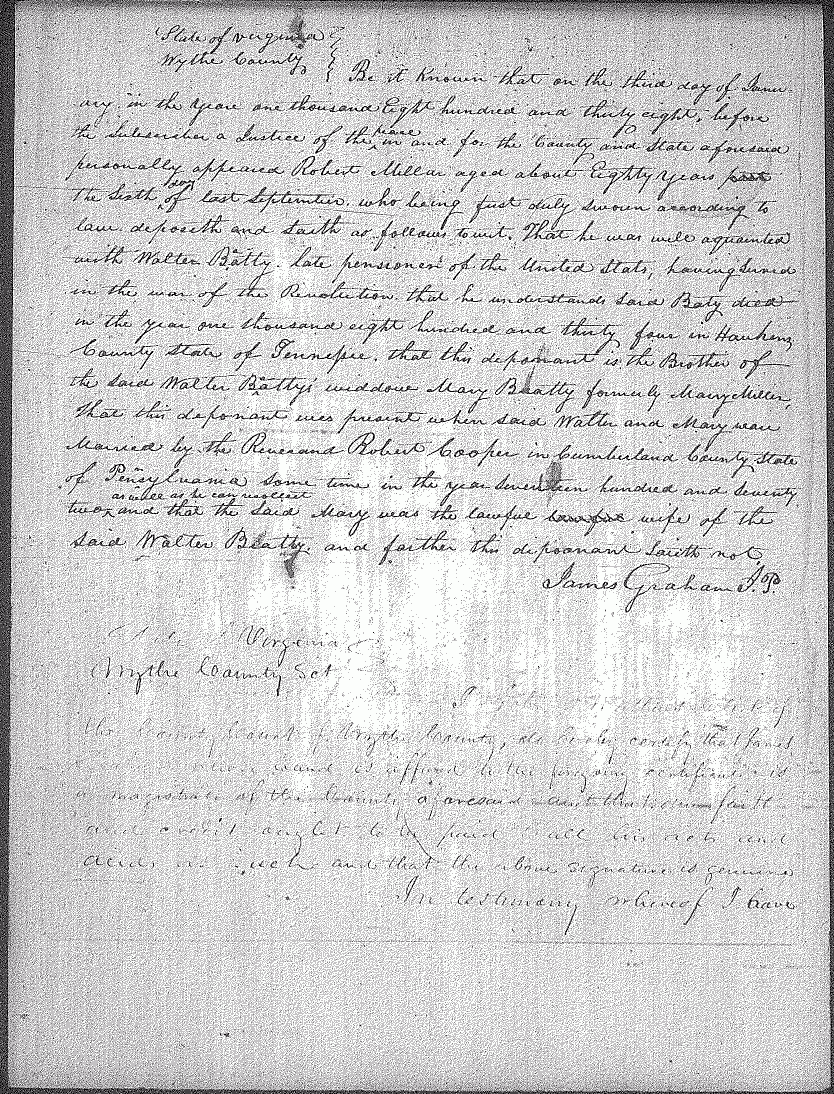 State of virginia
Wythe County
Be it Known that on the third day of Janu-
ary in the year one thousand Eight hundred and thirty eight, before
the Subscriber a Justice of the peace in and for the County and State aforesaid
personally appeared Robert Millar aged about Eighty years past
the Sixth day of last September who being first duly sworn according to
law deposeth and saith as follows towit. That he was well aquainted
with Walter Batty late pensioner of the United Stats, having Served
in the war of the Revolution that he understands said Baty died
in the year one thousand eight hundred and thirty four in Hawkens
County State of Tennessee. that this deponant is the Brother of
the said Walter Battys widdow Mary Beatty formerly Mary Miller,
That this deponant was present when said Walter and Mary ware
Married by the Reverand Robert Cooper in Cumberland County State
of Pensylvania some time in the year seventeen hundred and seventy
two as well as he can recollect and that the said Mary was the lawful lawful wife of the
said Walter Beatty and farther this depoonant Saith not
James Graham J.P.
Virginia
Wythe County Sct
the County Court of Wythe County, do hereby certify that James
is affixed to the foregoing certificate is
a magistrate of the County aforesaid and that faith
and credit ought to be paid all his acts and
as such and that the above signature is genuine
In testimony whereof I have